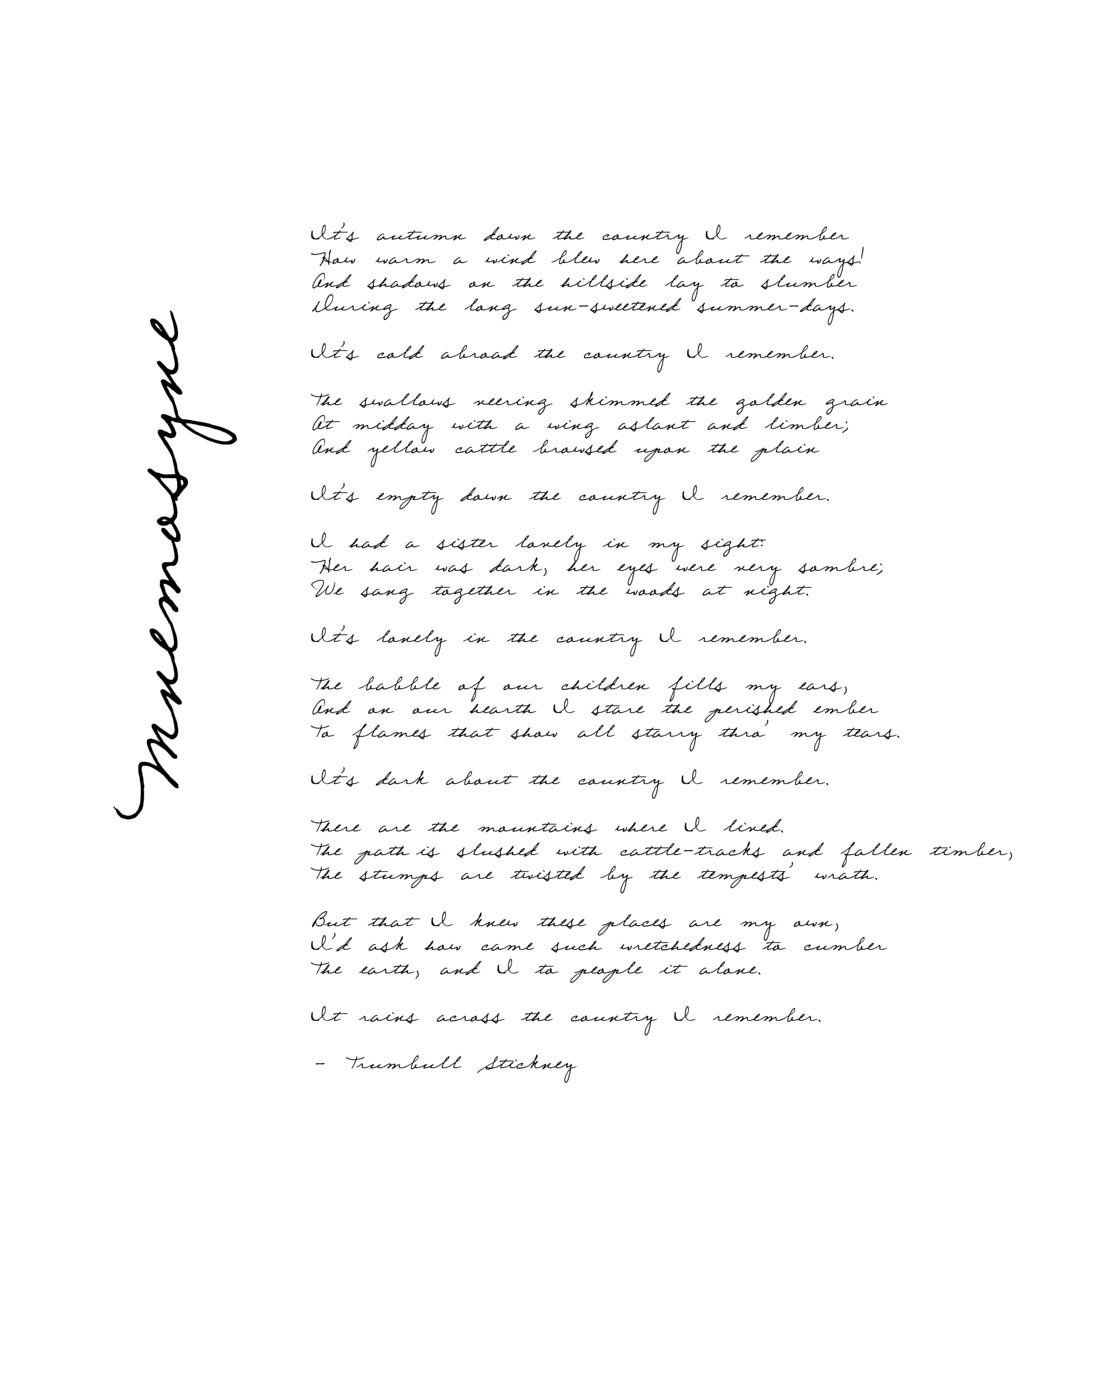 Mnemosyne
It's autumn down the country I remember
How warm a wind blew here about the ways!
And shadows on the hillside lay to slumber
During the long sun-sweetened summer-days.
It's cold abroad the country I remember.
The swallows veering skimmed the golden grain
At midday with a wing aslant and limber;
And yellow cattle browsed upon the plain
It's empty down the country I remember.
I had a sister lovely in my sight:
Her hair was dark, her eyes were very sombre;
We sang together in the woods at night.
It's lonely in the country I remember.
The babble of our children fills my ears,
And on our hearth I stare the perished ember
To flames that show all starry thro' my tears.
It's dark about the country I remember.
There are the mountains where I lived.
The path is slushed with cattle-tracks and fallen timber,
The stumps are twisted by the tempests' wrath.
But that I knew these places are my own,
I'd ask how came such wretchedness to cumber
The earth, and I to people it alone.
It rains across the country I remember.
- Trumbull Stickney